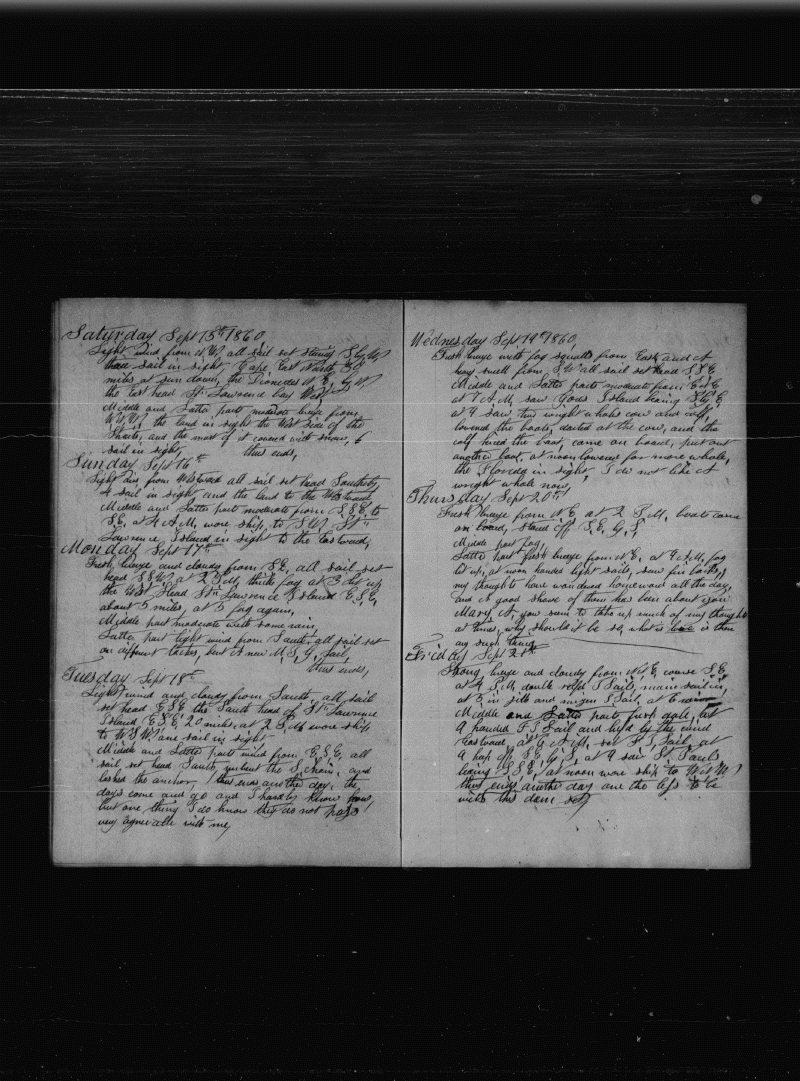 Saturday Sept 15th 1860
Light wind from N,W, all sail set steering S,by,W,
three sail in sight, Cape East North 30
miles at sun down, the Diomedes N,E,
the East head St Lawrence bay West
Middle and Latter part moderate breeze from
the land in sight the West side of the
Straits, and the most of it covered with snow, 6
sail in sight, thus ends,
Sunday Sept 16th
Light airs from Westward all sail set head Southerly
4 sail in sight and the land to the Westward,
Middle and Latter part moderate from S,S,E, to
S,E, at 4 A,M, wore ship, to S,W, St
Lawrence Island in sight to the Eastward,
Monday Sept 17th
Fresh breeze and cloudy from S,E, all sail set
head S,S,W, at 2 P,M, thick fog at 3 lit up
the West Head St Lawrence Island E,S,E,
about 5 miles, at 5 fog again,
Middle part moderate with some rain,
Latter part light wind from South, all sail set
on different tacks, bent A new M, S, G, Sail,
thus ends,
Tuesday Sept 18th
Light wind and cloudy from South, all sail
set head E,S,E, the South head of St Lawrence
Island E,S,E, 20 miles, at 2 P,M, wore ship
to W,S,W, one sail in sight
Middle and Latter parts wind from E,S,E, all
sail set head South, unbent the S, Chain, and
lashed the anchor, thus ends another day, the
days come and go and I hardly know how,
but one thing I do know they do not pass
very agreeable with me,
Wednesday Sept 19th 1860,
Fresh breeze with fog squalls from East and A
heavy swell from, S,W, all sail set head S,S,E,
Middle and Latter parts moderate from
at 7 A,M, saw Island bearing
at 9 saw two wright whale cow and calf,
lowered the boats, darted at the cow, and the
calf the boat, came on board, put out
another boat, at noon lowered for more whale,
the Florida in sight, I do not like A
wright whale now,
Thursday Sept 20th
Fresh breeze from N,E, at 2 P,M, boats came
on board, stand off S,E,
Middle part fog,
Latter part fresh breeze from N,E, at 9 A,M, fog
lit up, at noon handed light sails, saw fin backs,
my thoughts have wandered homeward all the day,
and A good share of them has been about you
Mary A, you seem to take up much of my thoughts
at times, why should it be so, what is love is there
any such thing
Friday Sept 21st
Strong breeze and cloudy from N,E, course S,E,
at 4 P,M, double reefd T Sails, main sail in,
at 5 in jib and mizen T Sail, at 6
Middle and Latter parts fresh gale, at
handed F, T Sail and by the wind
Eastward, at 4 A,M, set F, T, Sail, at
8 kep off S,E, at 9 saw St Pauls
bearing S,S,E, at noon wore ship to
thus ends another day one the less to be
with this dam set